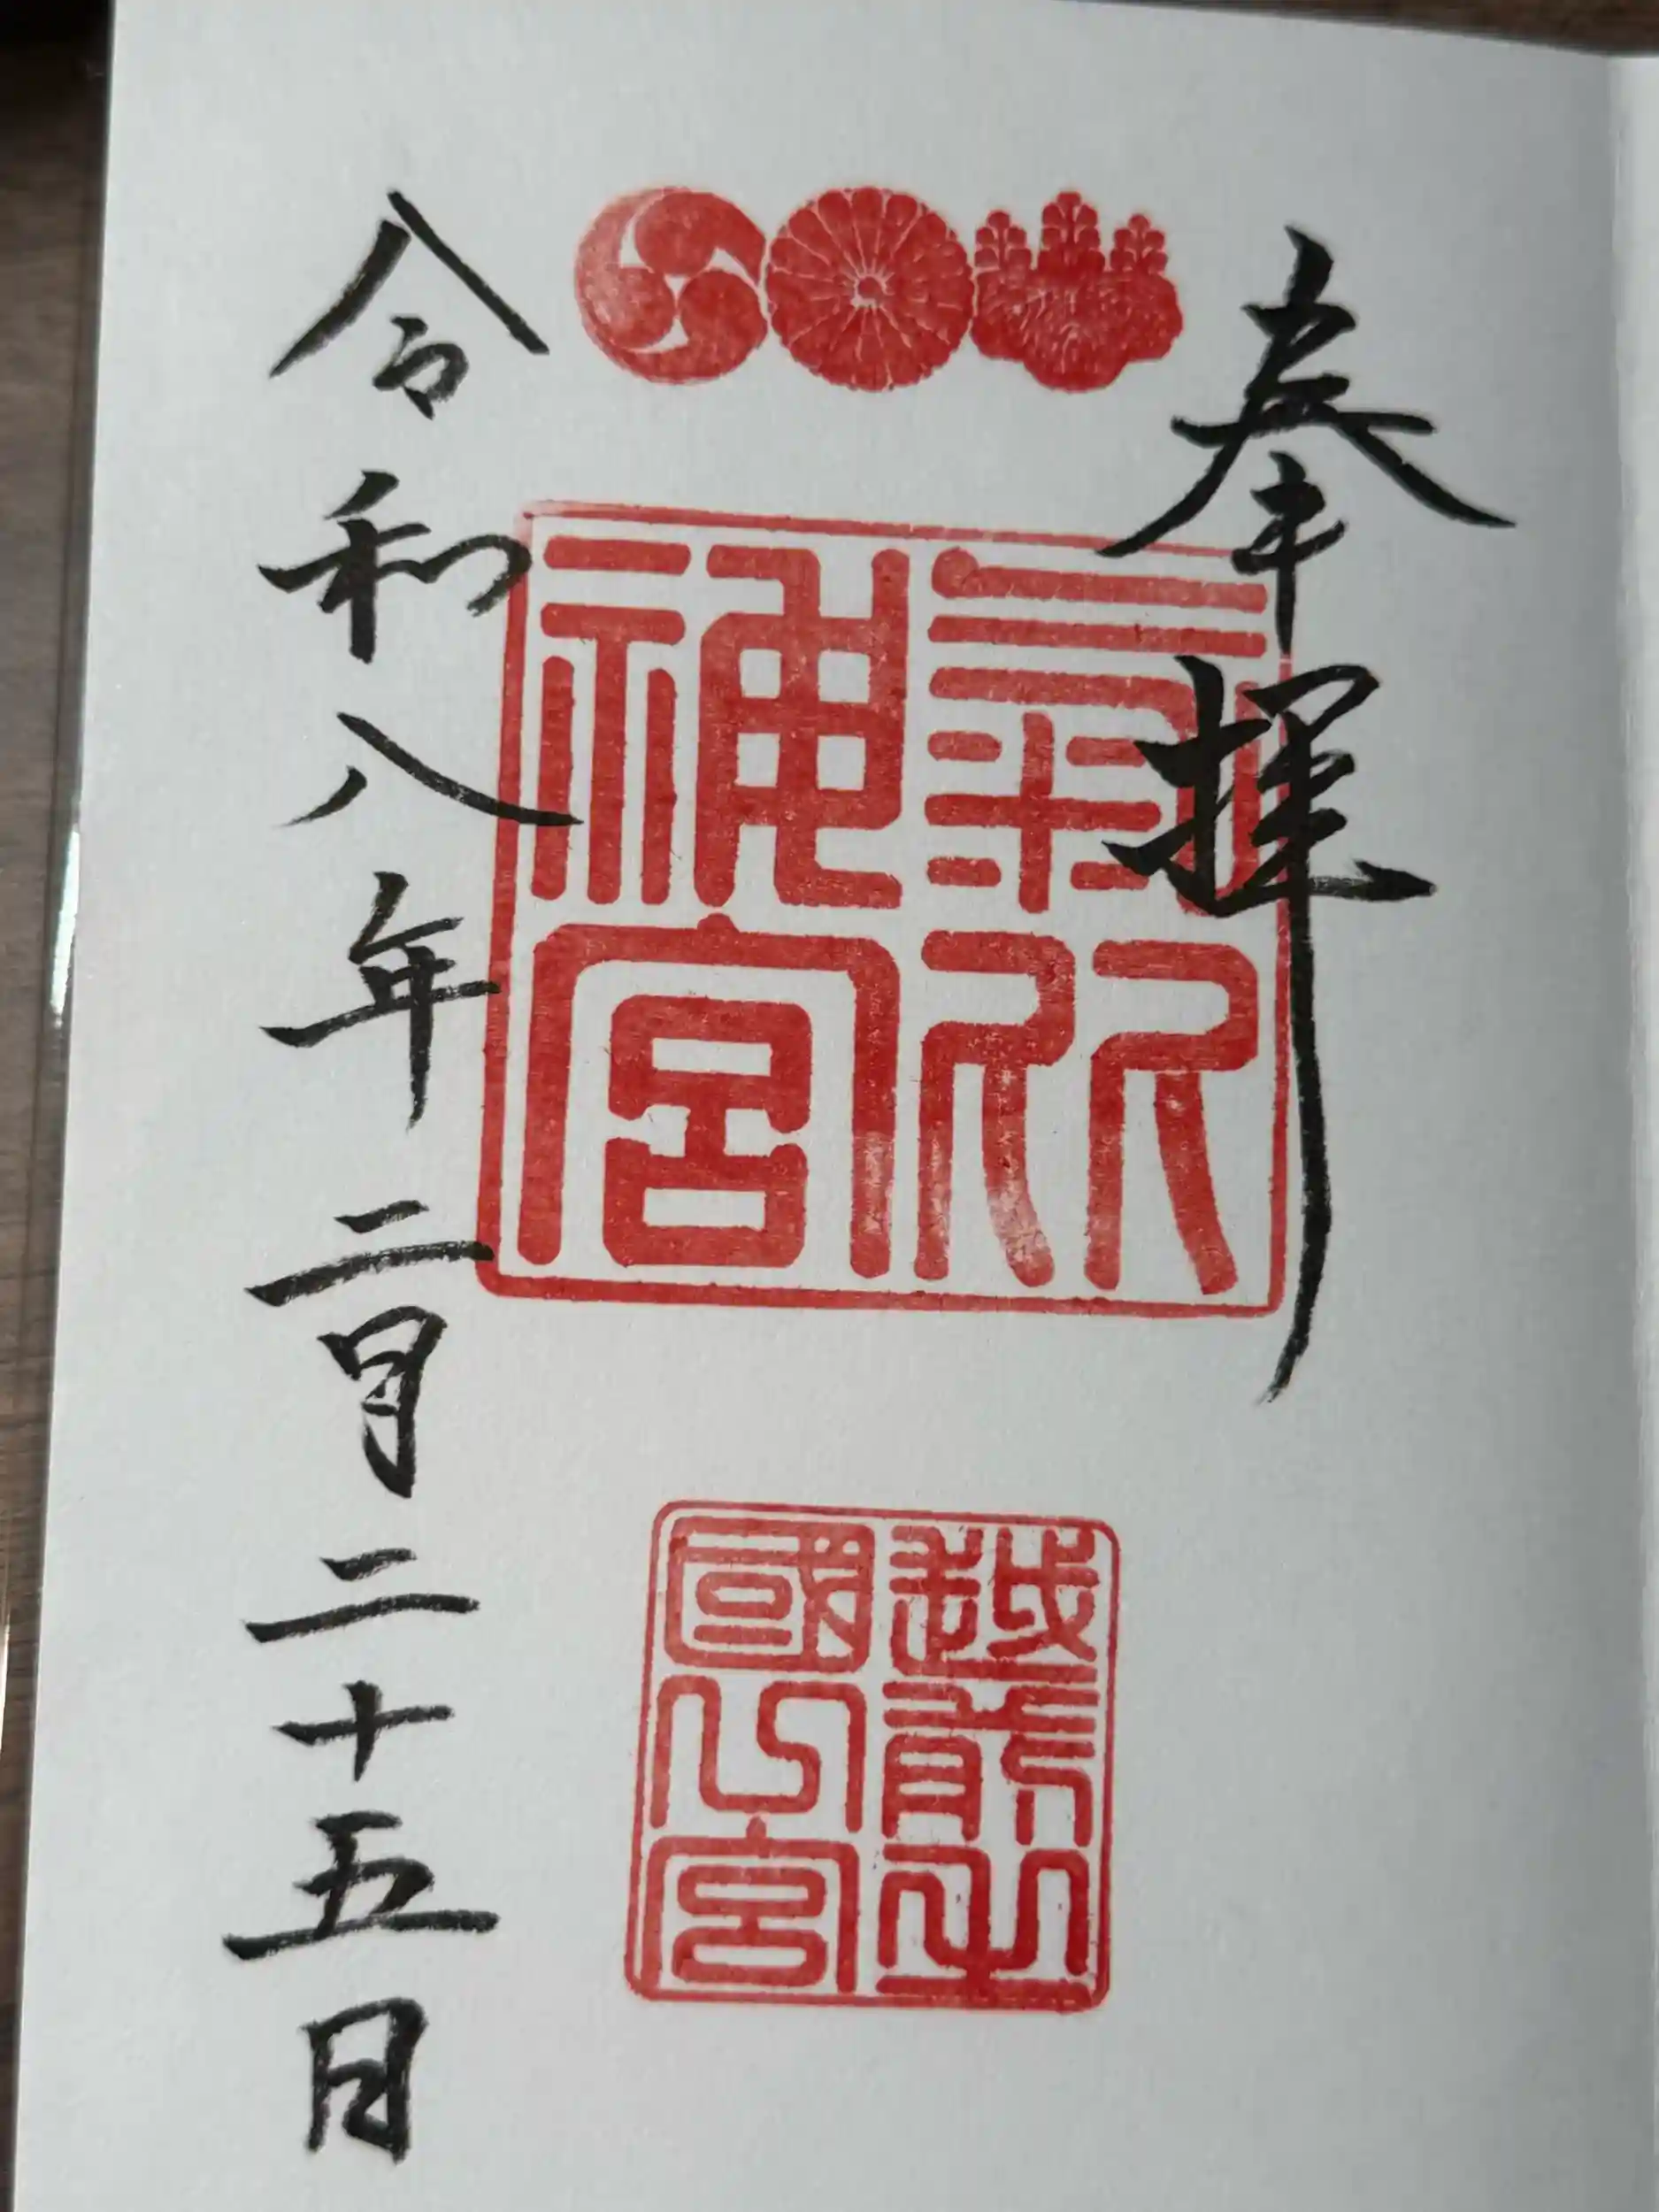 奉拝
氣比
神宮
越前一
國之宮
令和八年二月二十五日